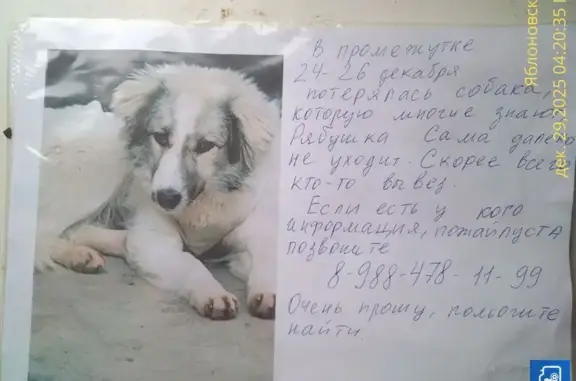 В промежутке
24-26 декабря
потерялась собака,
которую многие знаю
Рябушка Сама далеко
не уходит. Скорее всего
кто-то вывез.
Если есть у кого
информация, пожалуйста
позвоните
8-988-478-11-99
Очень прошу, помогите
найти.
Яблоновск
дек. 29,2025 04:20:35